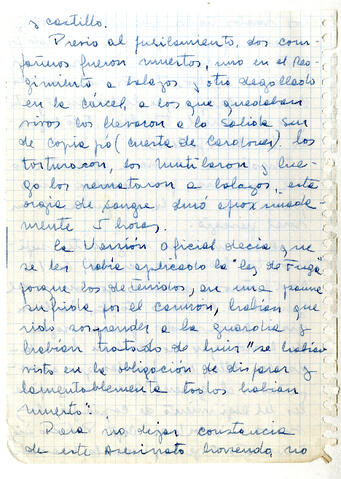 y castillo.
Previo al fusilamiento, dos com-
pañeros fueron muertos, uno en el Re-
gimiento a balazos y otro degollado
en la cárcel, a los que quedaban
vivos los llevaron a la salida sur
de copiapó (cuesta de Cardones), los
torturaron, los mutilaron y lue-
go los remataron a balazos, esta
orgia de sangre duró aproximada-
mente 5 horas.
La Versión oficial decia que
se les habia aplicado la "ley de Fuga"
porque los detenidos, en una panne
sufrida por el camión, habian que
rido sorprender a la guardia y
habian tratado de huir "se habian
visto en la obligacion de disparar y
lamentablemente todos habian
muerto".
Para no dejar constancia
de este Asesinato horrendo, no